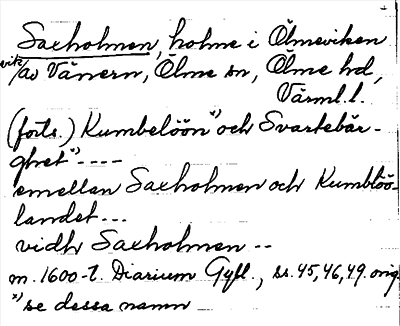 Saxholmen, holme i Ölmeviken
vik/av Vänern, Ölme sn, Ölme hd,
Värml. l.
(forts.) Kumbelöön*) och Svartebär-
ghet*) ----
emellan Saxholmen och Kumblöö-
landet ...
vidh Saxholmen --
m. 1600-t. Diarium Gyll., ss. 45, 46, 49. orig.
*) se dessa namn